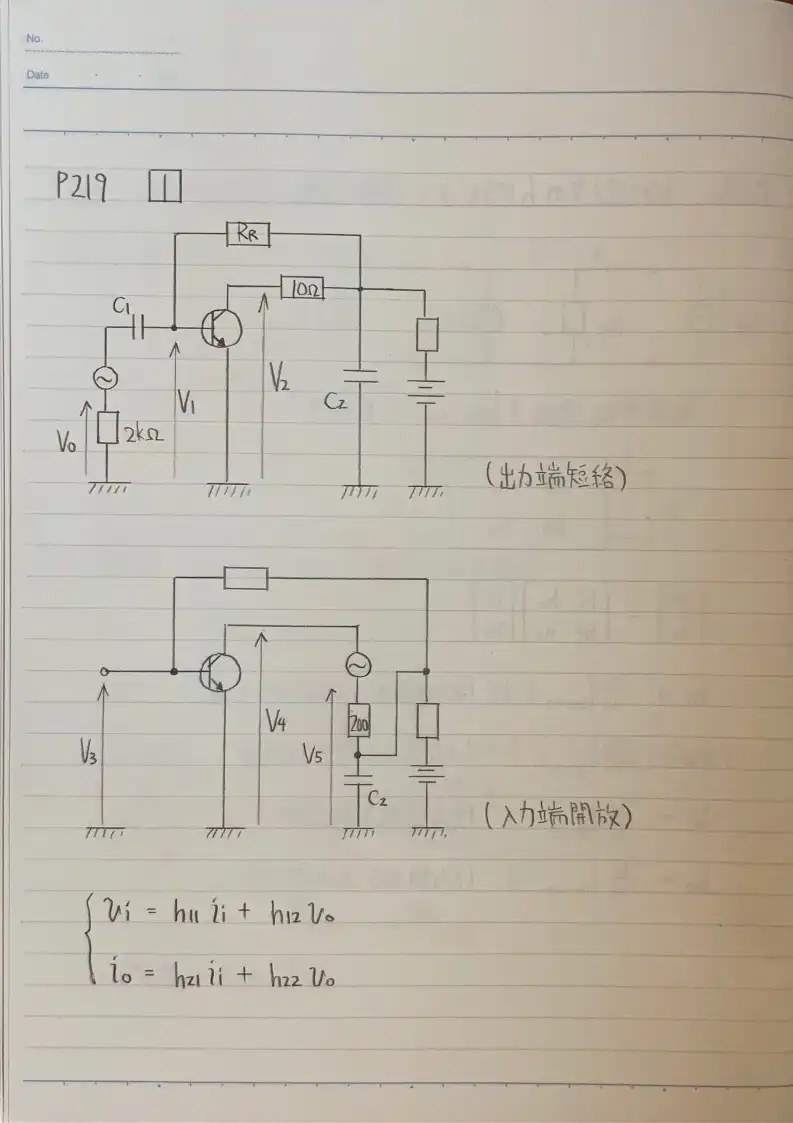 No.
Date
P219 1
RR
10Ω
C1
V1
V2
C2
V0
2kΩ
(出力端短絡)
V3
V4
V5
200
C2
(入力端開放)
vi = h11 ii + h12 vo
io = h21 ii + h22 vo